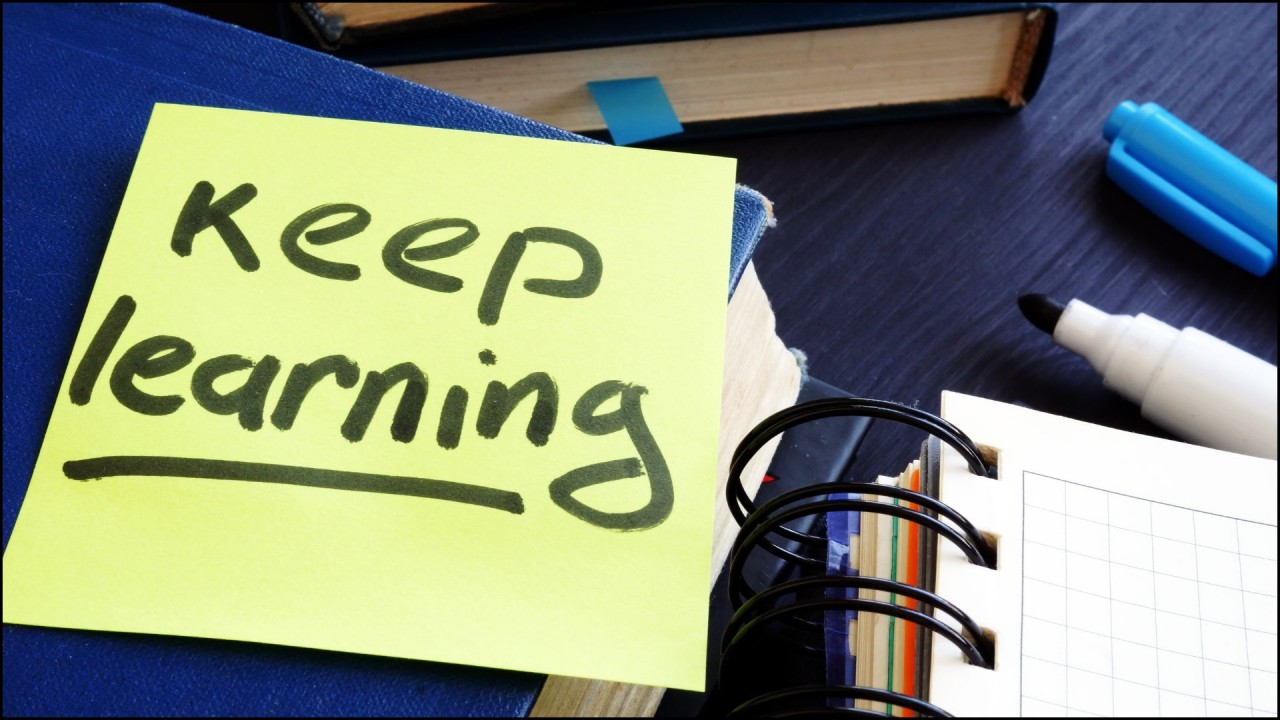 Keep
learning